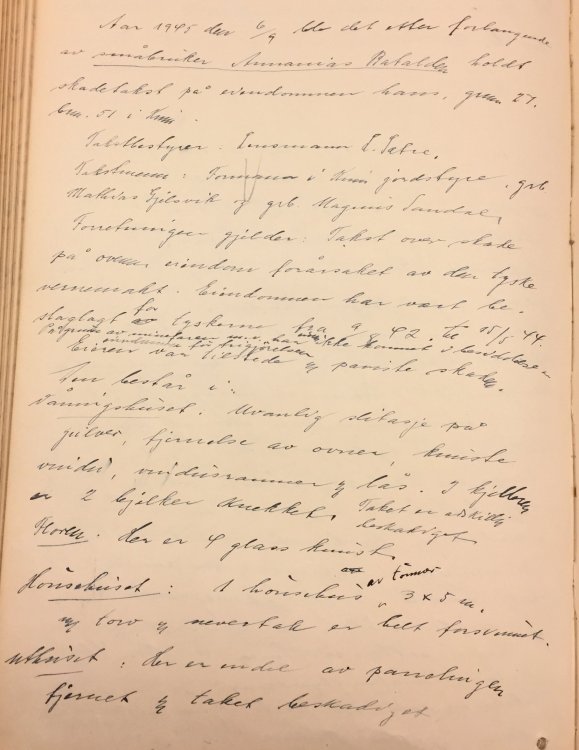 Aar 1945 den 6/9 ble det etter forlangende
av småbruker Ananias Batalden holdt
skadetakst på eiendommen hans, grnr. 27,
bnr. 51 i Kinn.
Takstbestyrer: Lensmann L. Sætre.
Takstmenn: Formann i Kinn jordstyre, grb.
Mathias Gjelsvik og grb. Magnus Sandal,
Forretningen gjelder: Takst over skade
på ovenn. eiendom forårsaket av den tyske
vernemakt. Eiendommen har vært be-
slaglagt for tyskerne fra 9 42 til 15/5 44.
På grunn av minefaren har eieren ikke kommet i besiddelse
før frigjørelsen
Eieren var tilstede og påviste skaden.
Den består i:
Våningshuset. Uvanlig slitasje på
gulver, fjernelse av ovner, knuste
vinduer, vindusrammer og lås. I kjelleren
er 2 bjelker knekket. Taket er adskillig
beskadiget
Floren. Her er 4 glass knust.
Hönsehuset: 1 hönsehus av tömmer 3 x 5 m.
og torv og nevertak er helt forsvunnet.
Uthuset: Her er endel av panelingen
fjernet og taket beskadiget